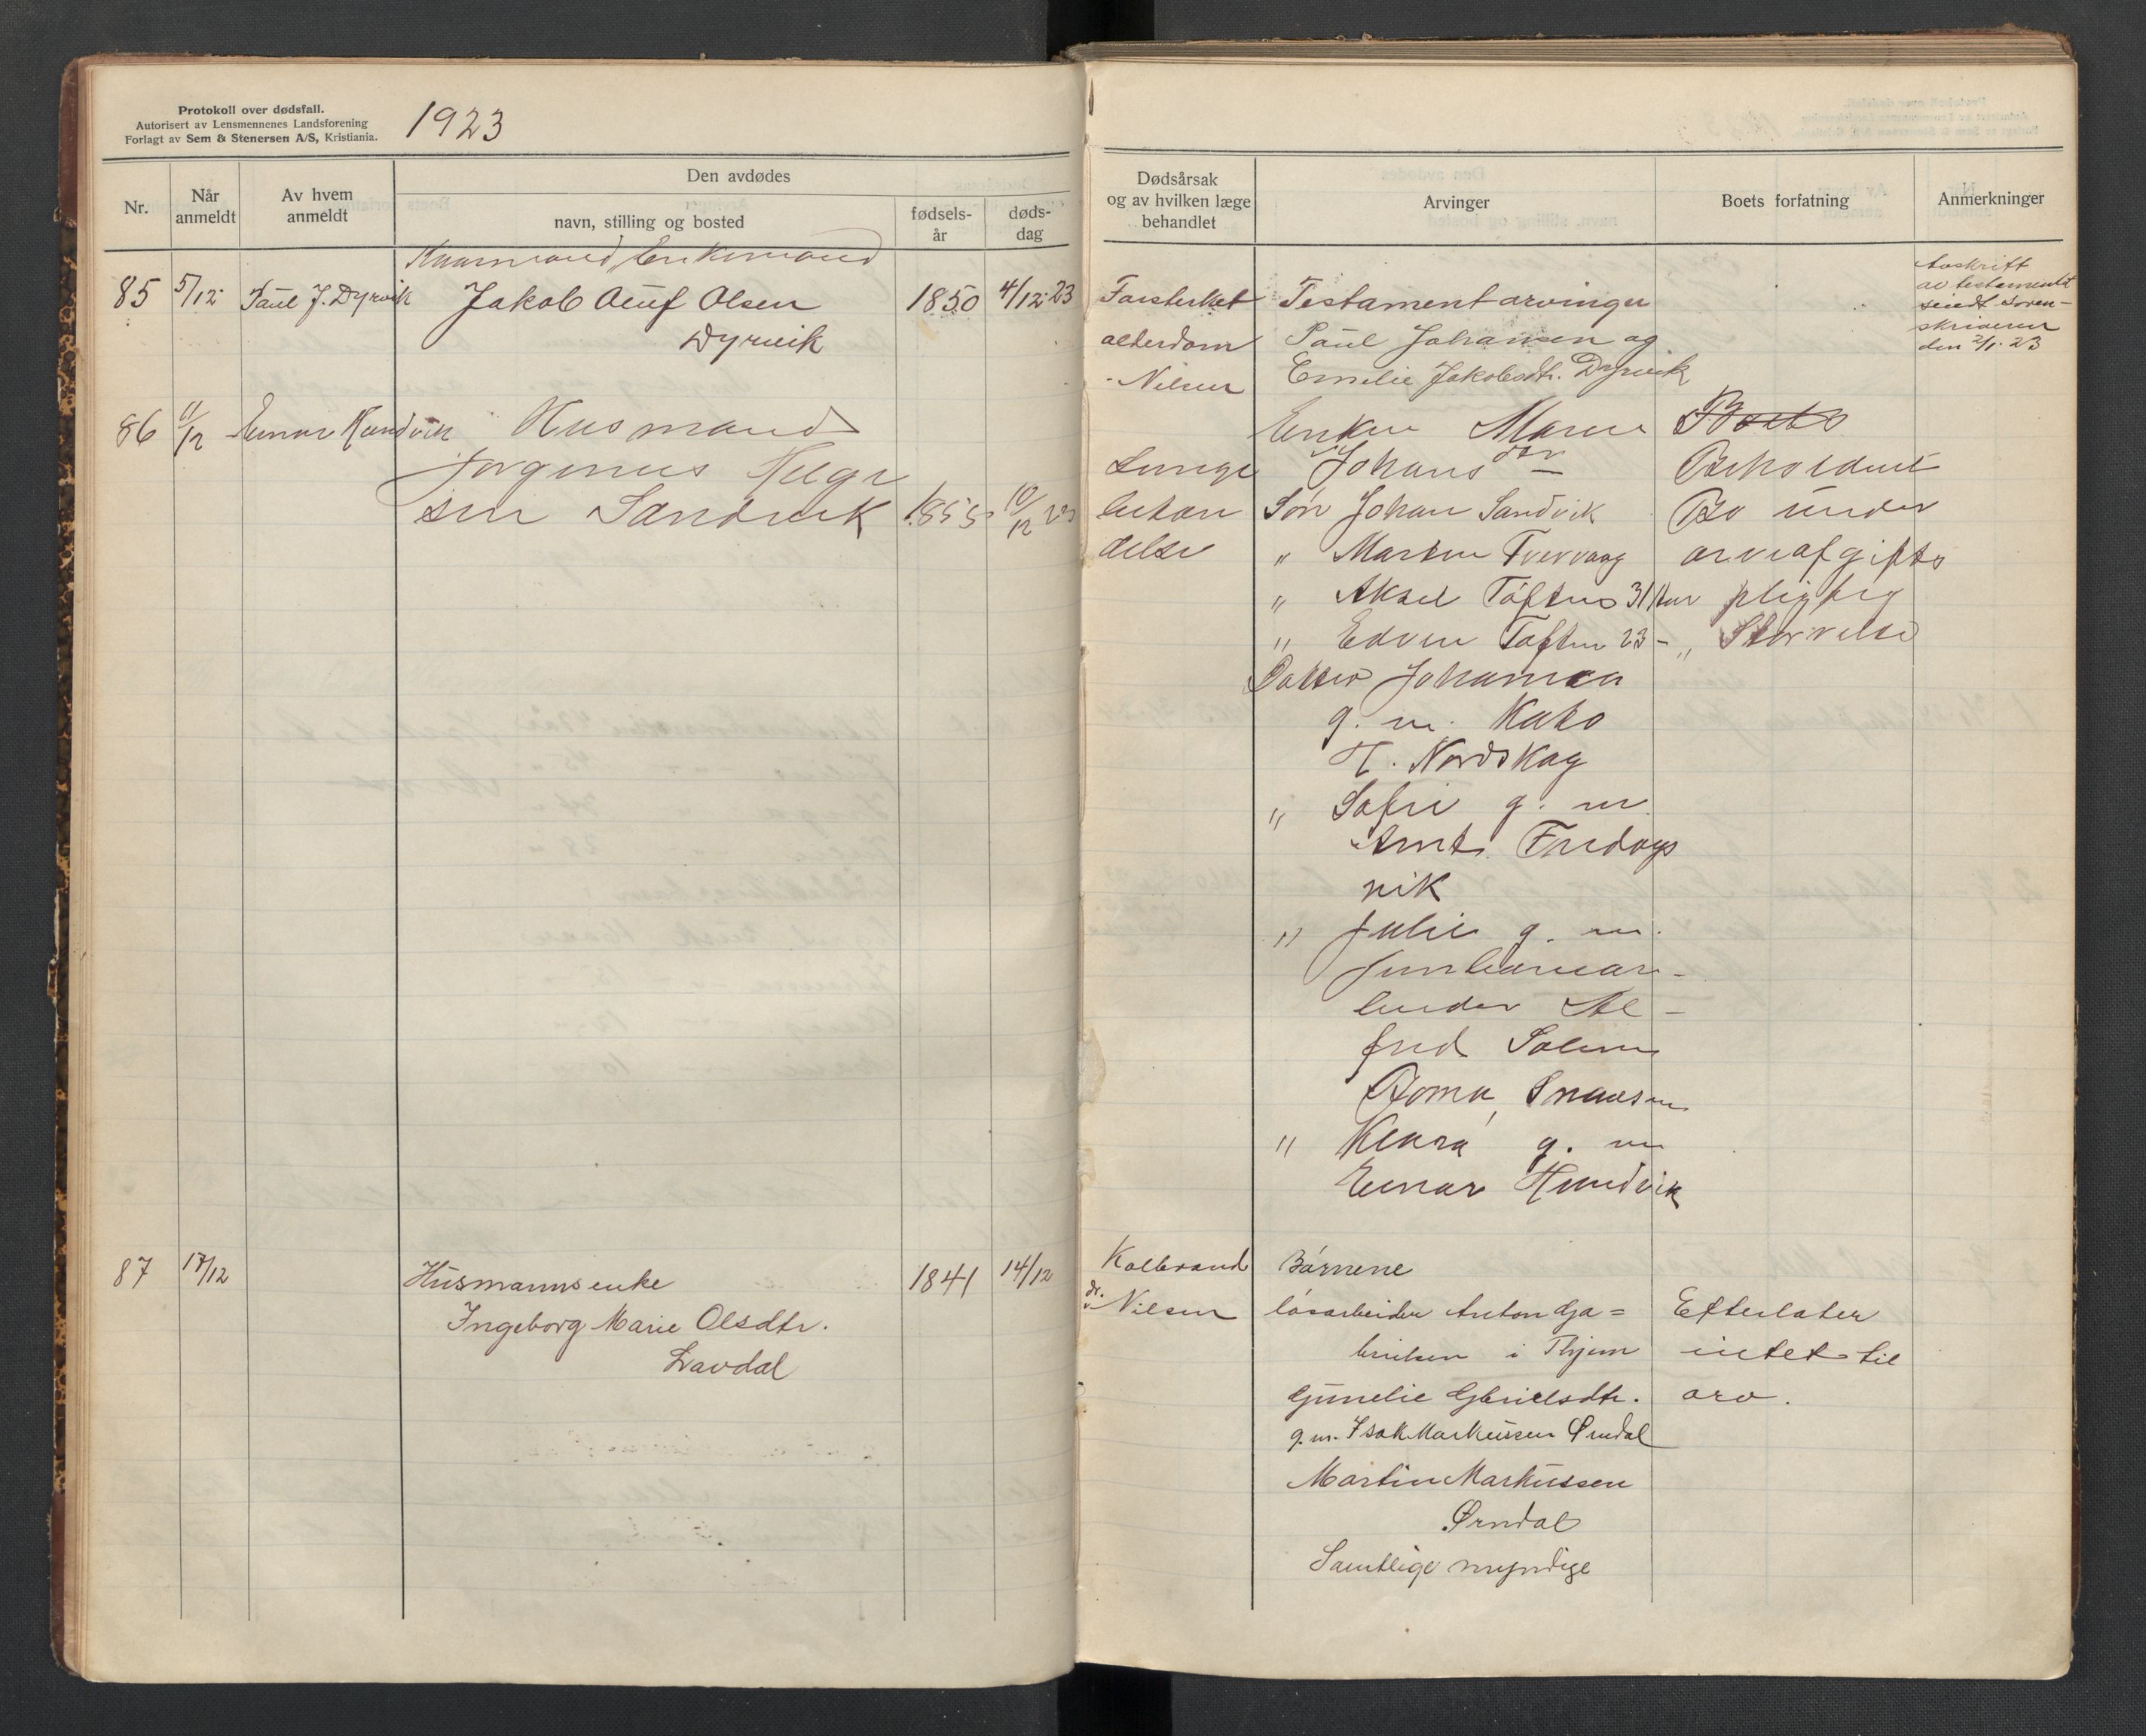 Protokoll over dødsfall.
Autorisert av Lensmennenes Landsforening
Forlagt av Sem & Stenersen A/S, Kristiania.
1923
Nr.
Når anmeldt
Av hvem anmeldt
Den avdødes
navn, stilling og bosted
fødsels-år
døds-dag
Dødsårsak
og av hvilken læge
behandlet
Arvinger
Boets forfatning
Anmerkninger
Kaarmand, Enkemand
85 5/12 Paul J. Dyrvik Jakob Oluf Olsen 1850 4/12-23
Dyrvik
Forsterket
alderdom
Nilsen
Testamentarvinger
Paul Johansen og
Emelie Jakobsdtr. Dyrvik
Avskrift
av testamentet
sendt soren-
skriveren
den 2/1. 23
86 11/12 Einar Hundvik Husmand
Jørginus Helge
sen Sandvik 1855 10/12 23
Lunge
betæn
delse
Enken Maren
Johans dtr
Søn Johan Sandvik
" Martin Tvervaag
" Aksel Toften 31 aar
" Edvin Toften 23 - "
Datter Johanna
g. m. Kato
T. Nordskag
" Sofie g. m.
Arnt Fredags
vik
" Julie g. m.
Jernbanear-
beider Al-
fred Solem
Roma, Snaasen
" Klara g. m
Einar Hundvik
Boets
Beholdent
Bo under
arveafgifts
pligtig
Størrelse
87 17/12 Husmannsenke 1841 14/12
Ingeborg Marie Olsdtr.
Lavdal
Kolbrand
dr. Nilsen
Børnene
løsarbeider Anton Ga=
brielsen i Thjem
Gunelie Gbrielsdtr.
g. m. Isak Markussen Ørndal
Martin Markussen
Ørndal
Samtlige myndige
Efterlater
intet til
arv.